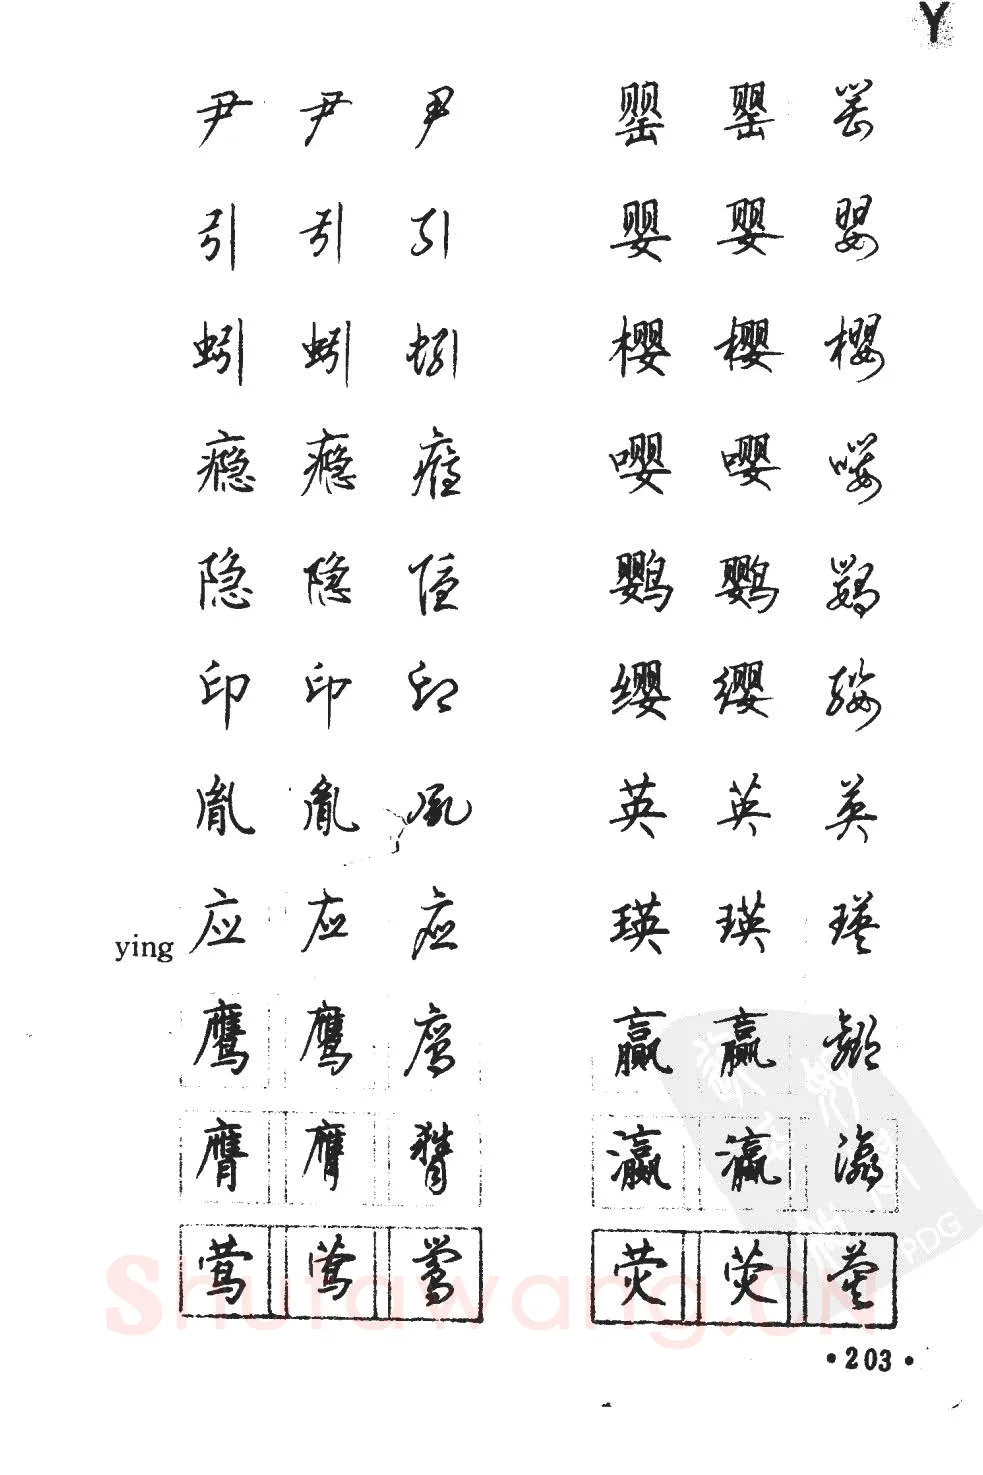 Y
尹 尹 尹 罂 罂 罂
引 引 引 婴 婴 婴
蚓 蚓 蚓 樱 樱 樱
瘾 瘾 瘾 嘤 嘤 嘤
隐 隐 隐 鹦 鹦 鹦
印 印 印 缨 缨 缨
胤 胤 胤 英 英 英
ying 应 应 应 瑛 瑛 瑛
鹰 鹰 鹰 赢 赢 赢
膺 膺 膺 瀛 瀛 瀛
莺 莺 莺 荧 荧 荧
Shufawang.CN
PDG
•203•